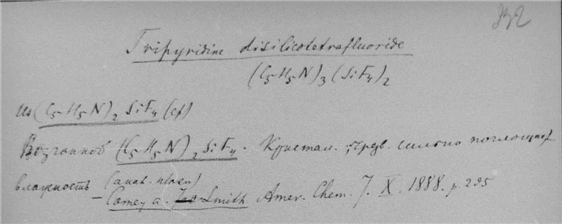 832
Tripyridine disilicotetrafluoride
(C5H5N)3(SiF4)2
Из (C5H5N)2SiF4 (cf)
Возгонкою (C5H5N)2SiF4. Кристал. сильно поглощает
влажность (анал. плохи)
– Comey a. Smith. Amer. Chem. J. X. 1888. p. 295